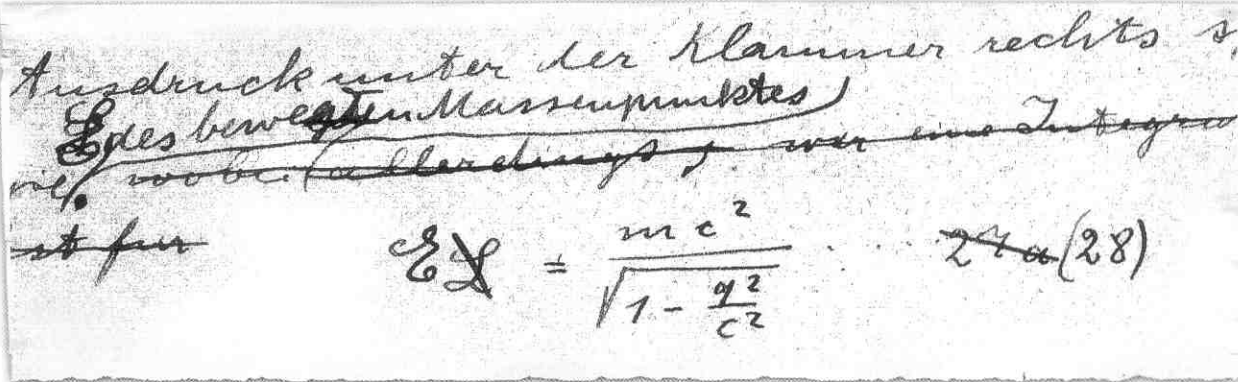 Ausdruck unter der Klammer rechts
des bewegten Massenpunktes)
wobei (allerdings, wir eine Integra
st für
E L = mc² / √(1 - q²/c²) . . . 27a (28)